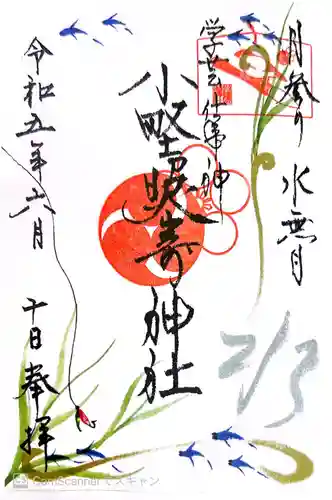 月参り 水無月
学芸仕事神
小野照崎神社
令和五年六月
十日 奉拝
2/3
CamScannerでスキャン